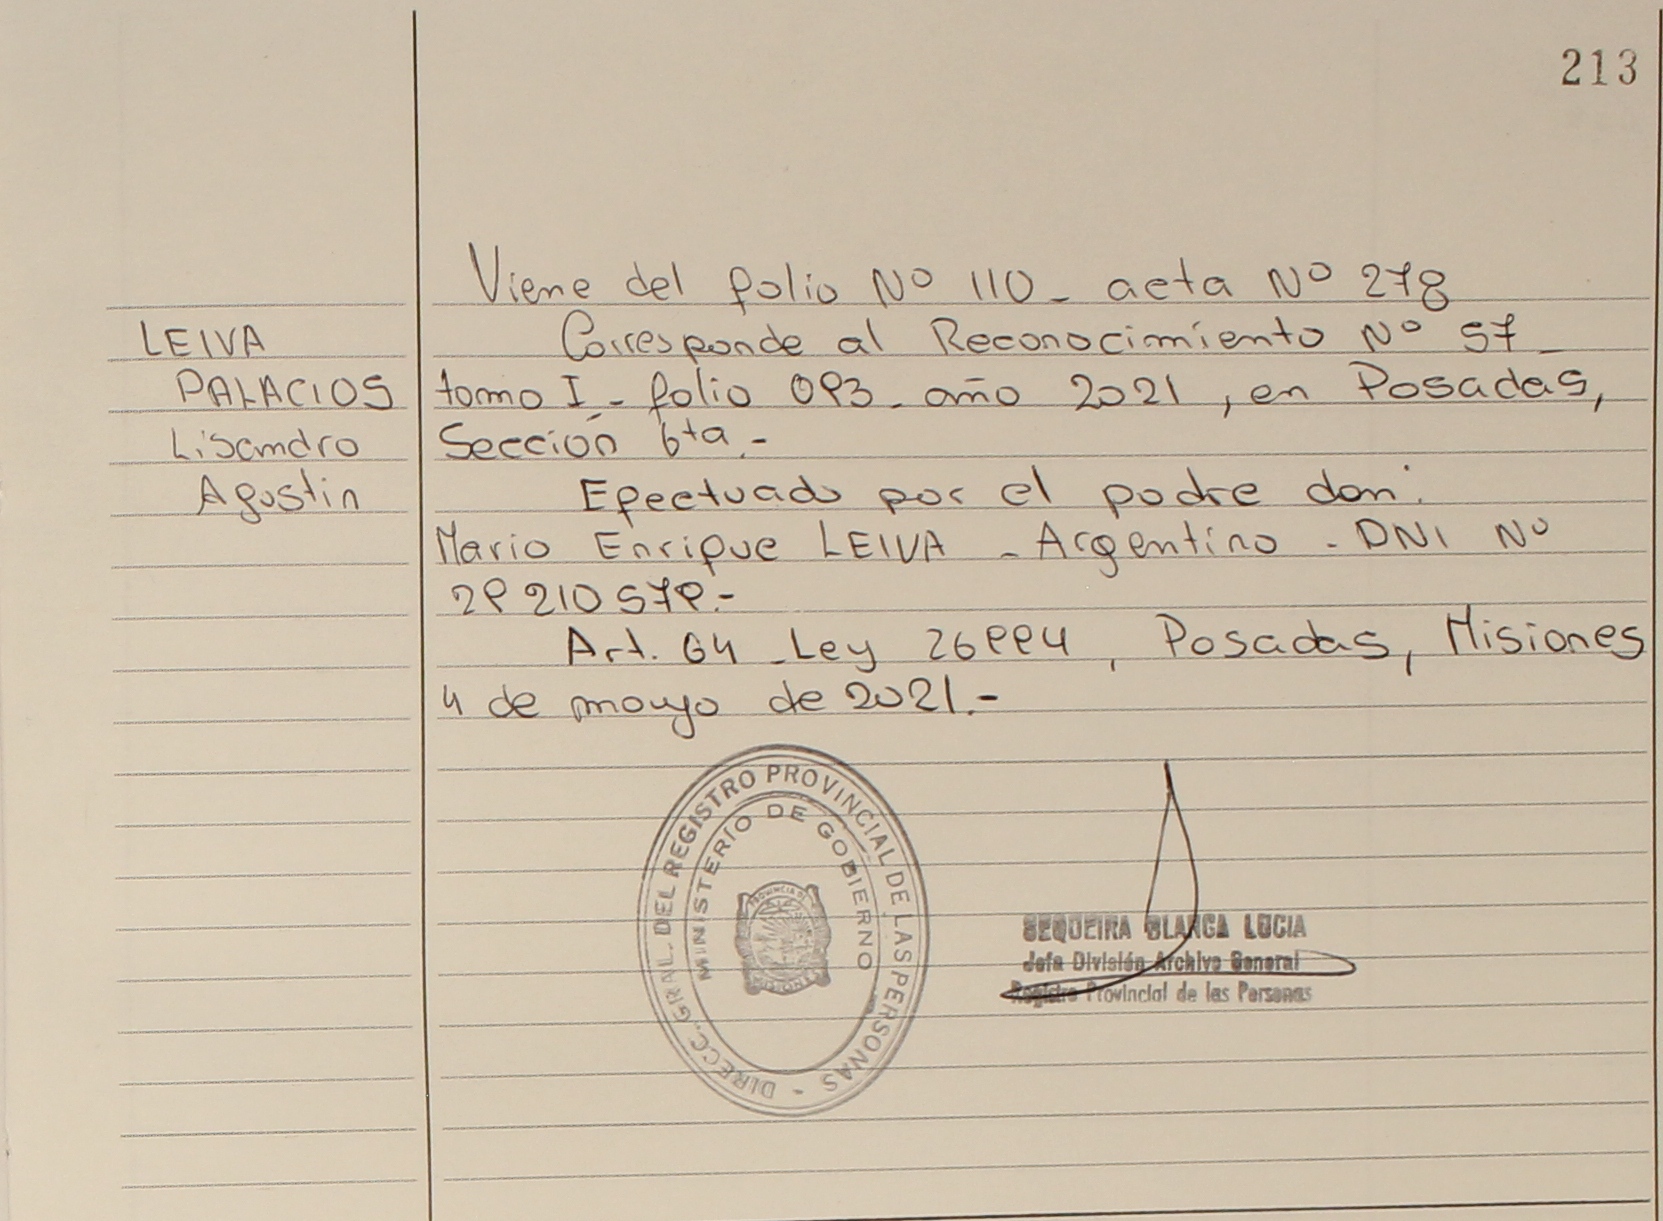 213
Viene del folio Nº 110 - acta Nº 278
LEIVA
PALACIOS
Lisandro
Agustin
Corresponde al Reconocimiento Nº 57 -
tomo I - folio 093 - año 2021, en Posadas,
Sección 6ta.-
Efectuado por el padre don:
Mario Enrique LEIVA - Argentino - DNI Nº
29210579.-
Art. 64 - Ley 26994, Posadas, Misiones
4 de mayo de 2021.-
DIRECC. GRAL. DEL REGISTRO PROVINCIAL DE LAS PERSONAS -
MINISTERIO DE GOBIERNO
PROVINCIA DE
MISIONES
SEQUEIRA BLANCA LUCIA
Jefa División Archivo General
Registro Provincial de las Personas